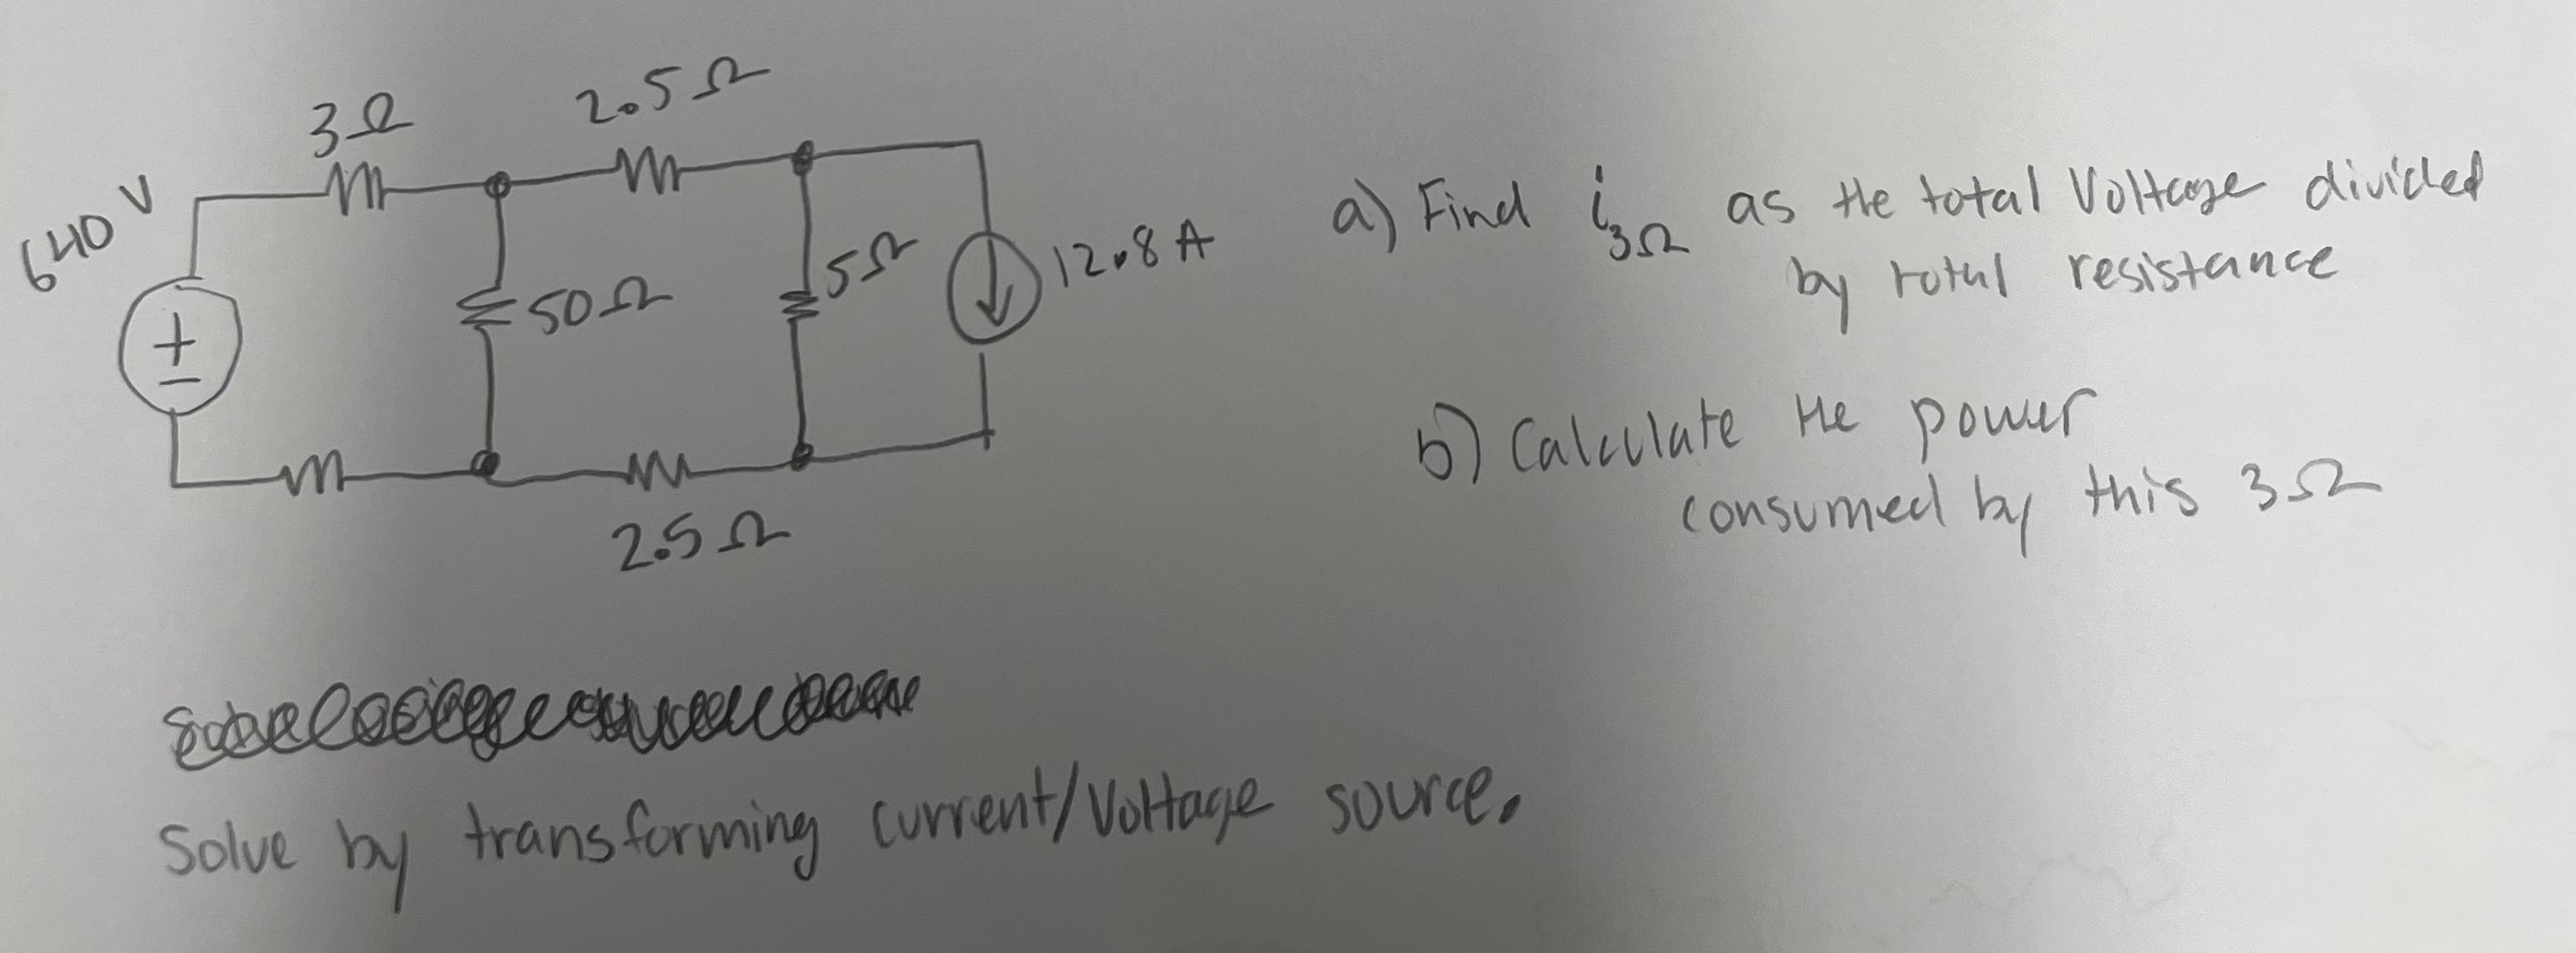 640 V
3Ω
2.5 Ω
50Ω
5Ω
12.8 A
2.5 Ω
a) Find i3Ω as the total Voltage divided
by total resistance
b) Calculate the power
consumed by this 3Ω
Solve by transforming current/Voltage source.